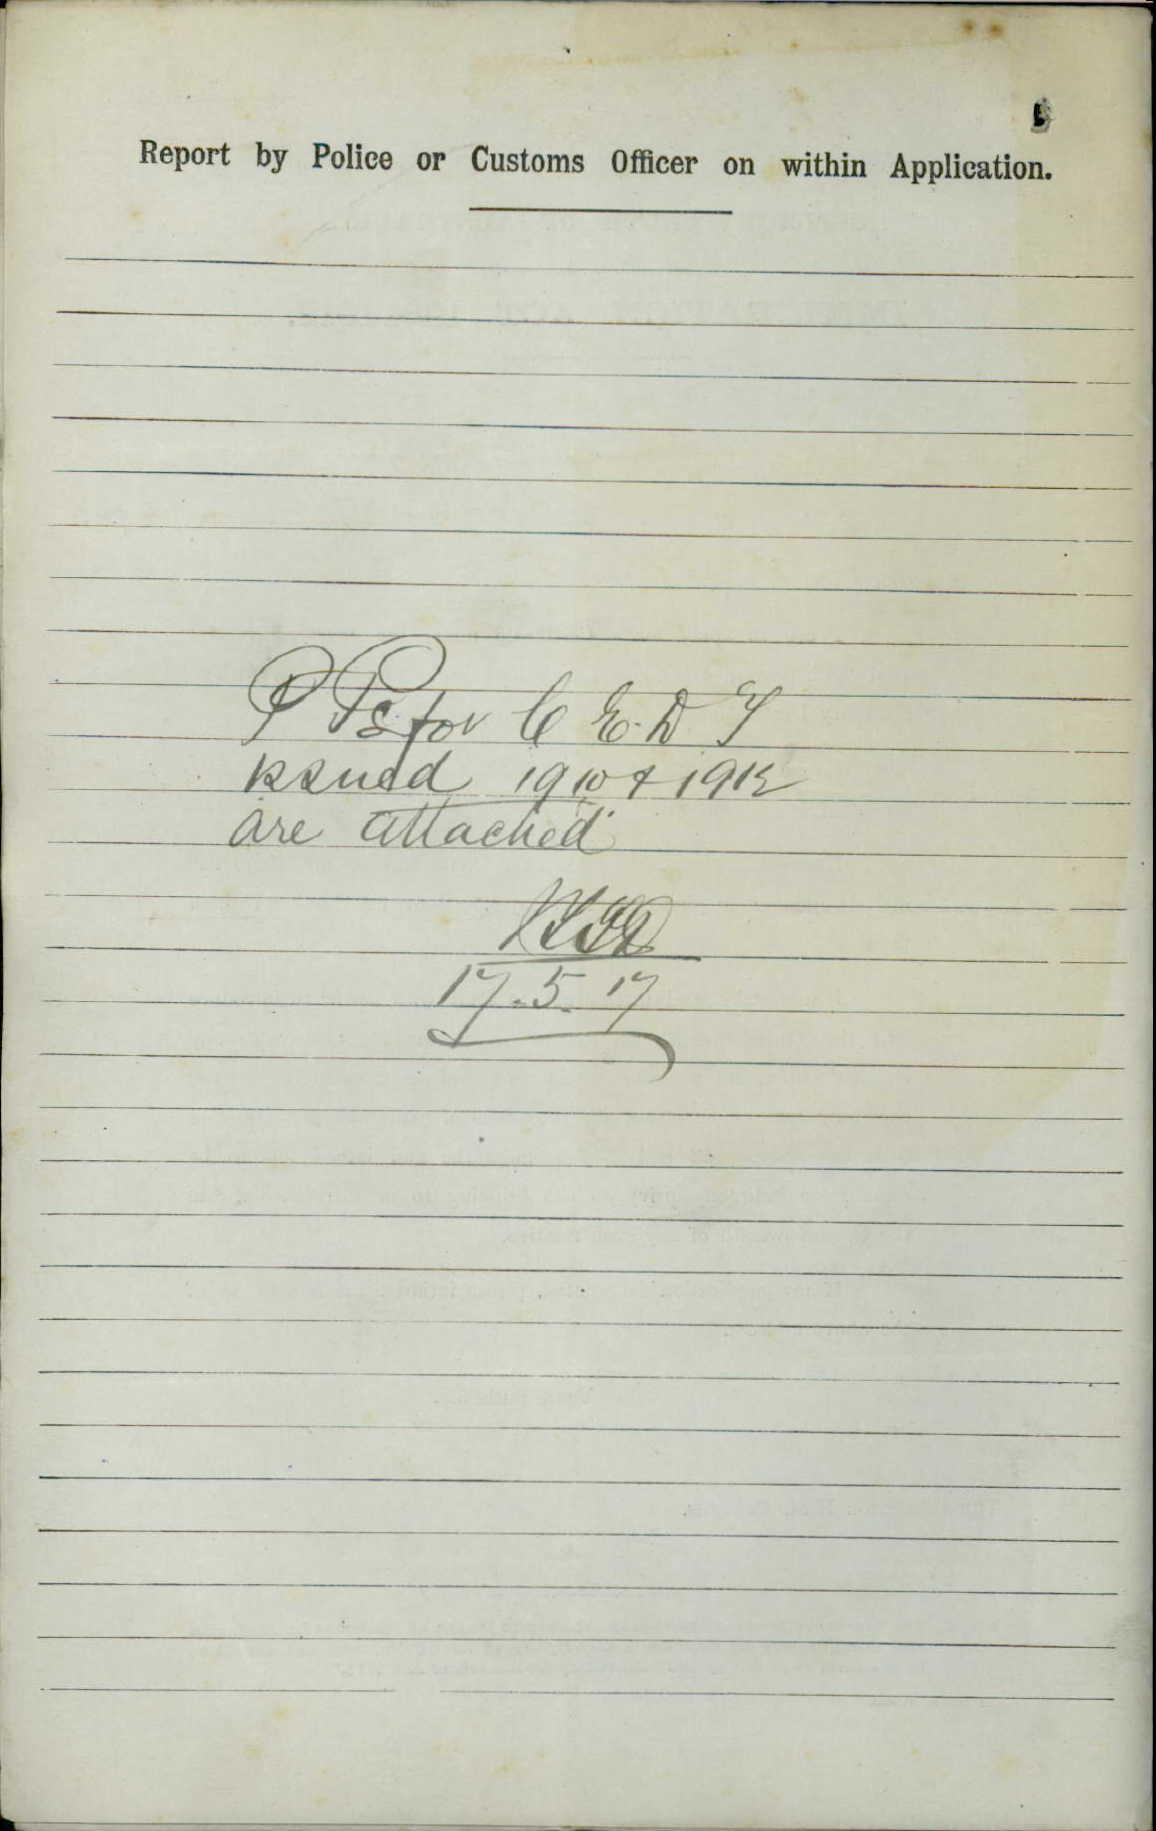 Report by Police or Customs Officer on within Application.
P Ps for C E. D T
issued 1910 & 1912
are attached
17.5.17